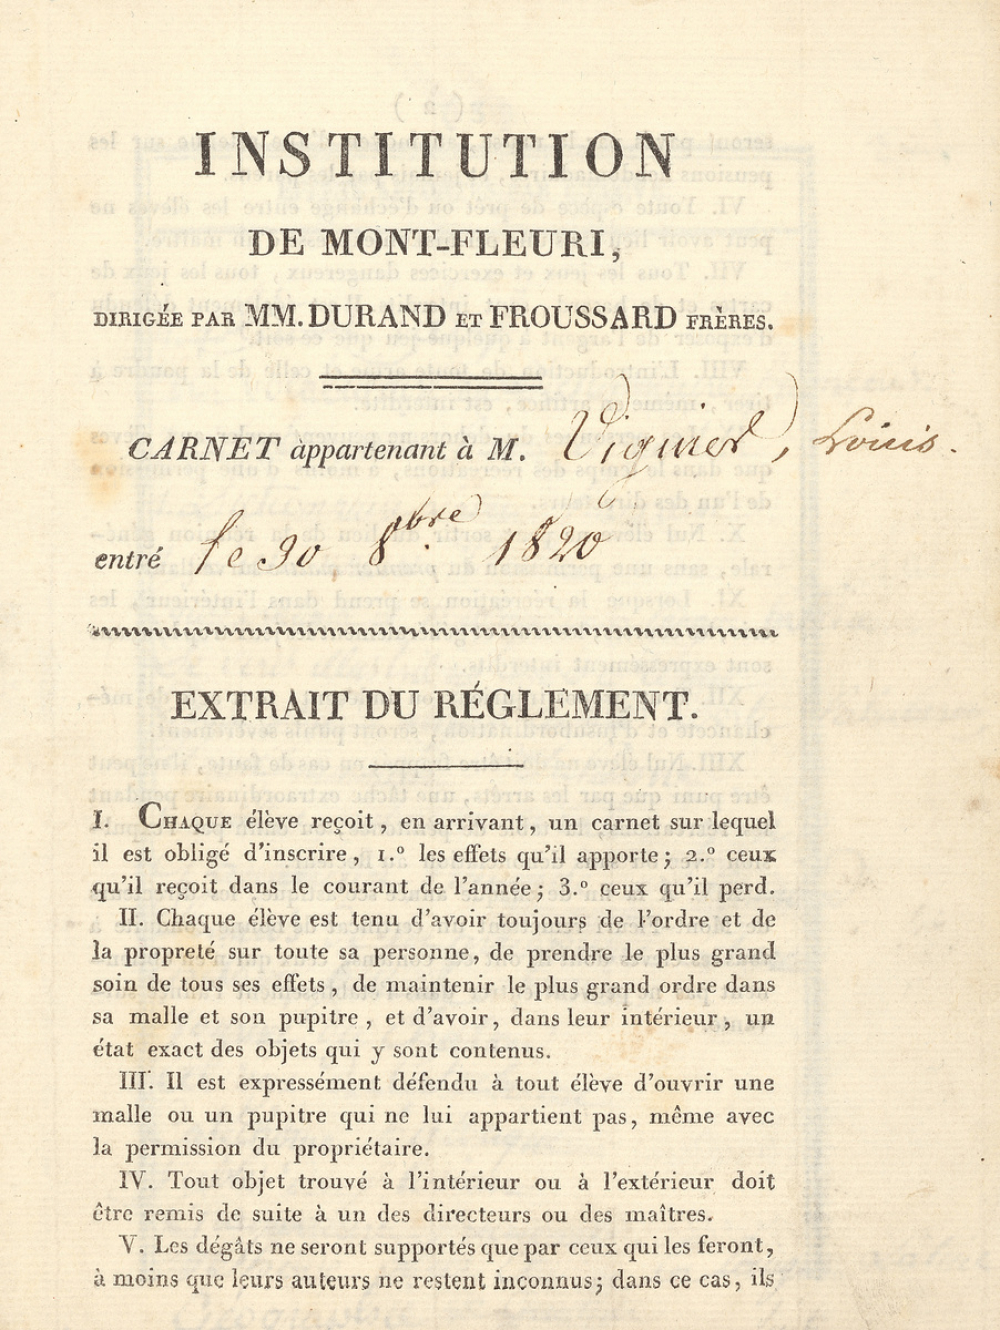 INSTITUTION
DE MONT-FLEURI,
DIRIGÉE PAR MM. DURAND ET FROUSSARD FRÈRES.
CARNET àppartenant à M. Viguier, Louis.
entré le 30 8bre. 1820
EXTRAIT DU RÉGLEMENT.
I. CHAQUE élève reçoit, en arrivant, un carnet sur lequel
il est obligé d'inscrire, 1.º les effets qu'il apporte; 2.º ceux
qu'il reçoit dans le courant de l'année; 3.º ceux qu'il perd.
II. Chaque élève est tenu d'avoir toujours de l'ordre et de
la propreté sur toute sa personne, de prendre le plus grand
soin de tous ses effets, de maintenir le plus grand ordre dans
sa malle et son pupitre, et d'avoir, dans leur intérieur, un
état exact des objets qui y sont contenus.
III. Il est expressément défendu à tout élève d'ouvrir une
malle ou un pupitre qui ne lui appartient pas, même avec
la permission du propriétaire.
IV. Tout objet trouvé à l'intérieur ou à l'extérieur doit
être remis de suite à un des directeurs ou des maîtres.
V. Les dégâts ne seront supportés que par ceux qui les feront,
à moins que leurs auteurs ne restent inconnus; dans ce cas, ils